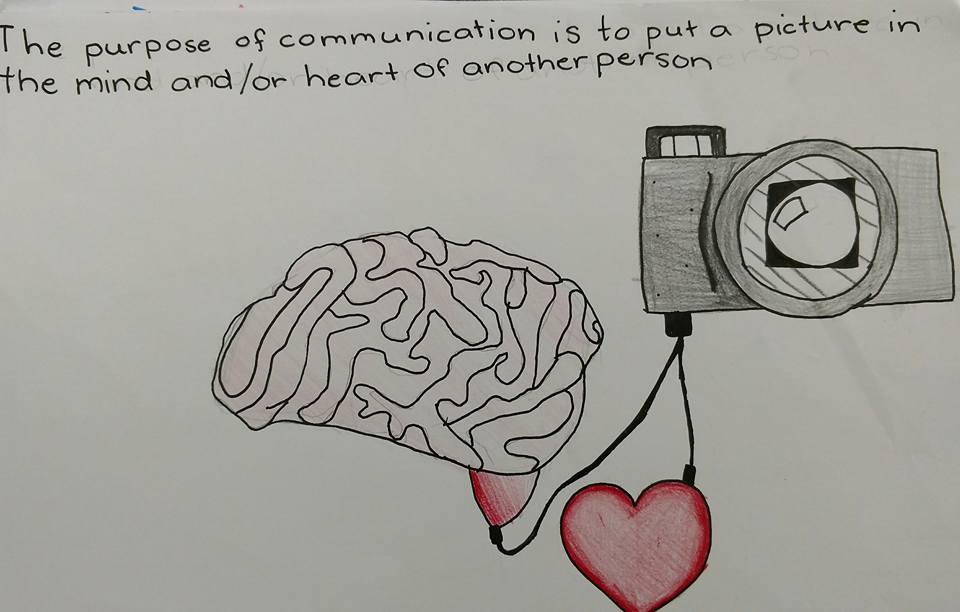 The purpose of communication is to put a picture in
the mind and/or heart of another person